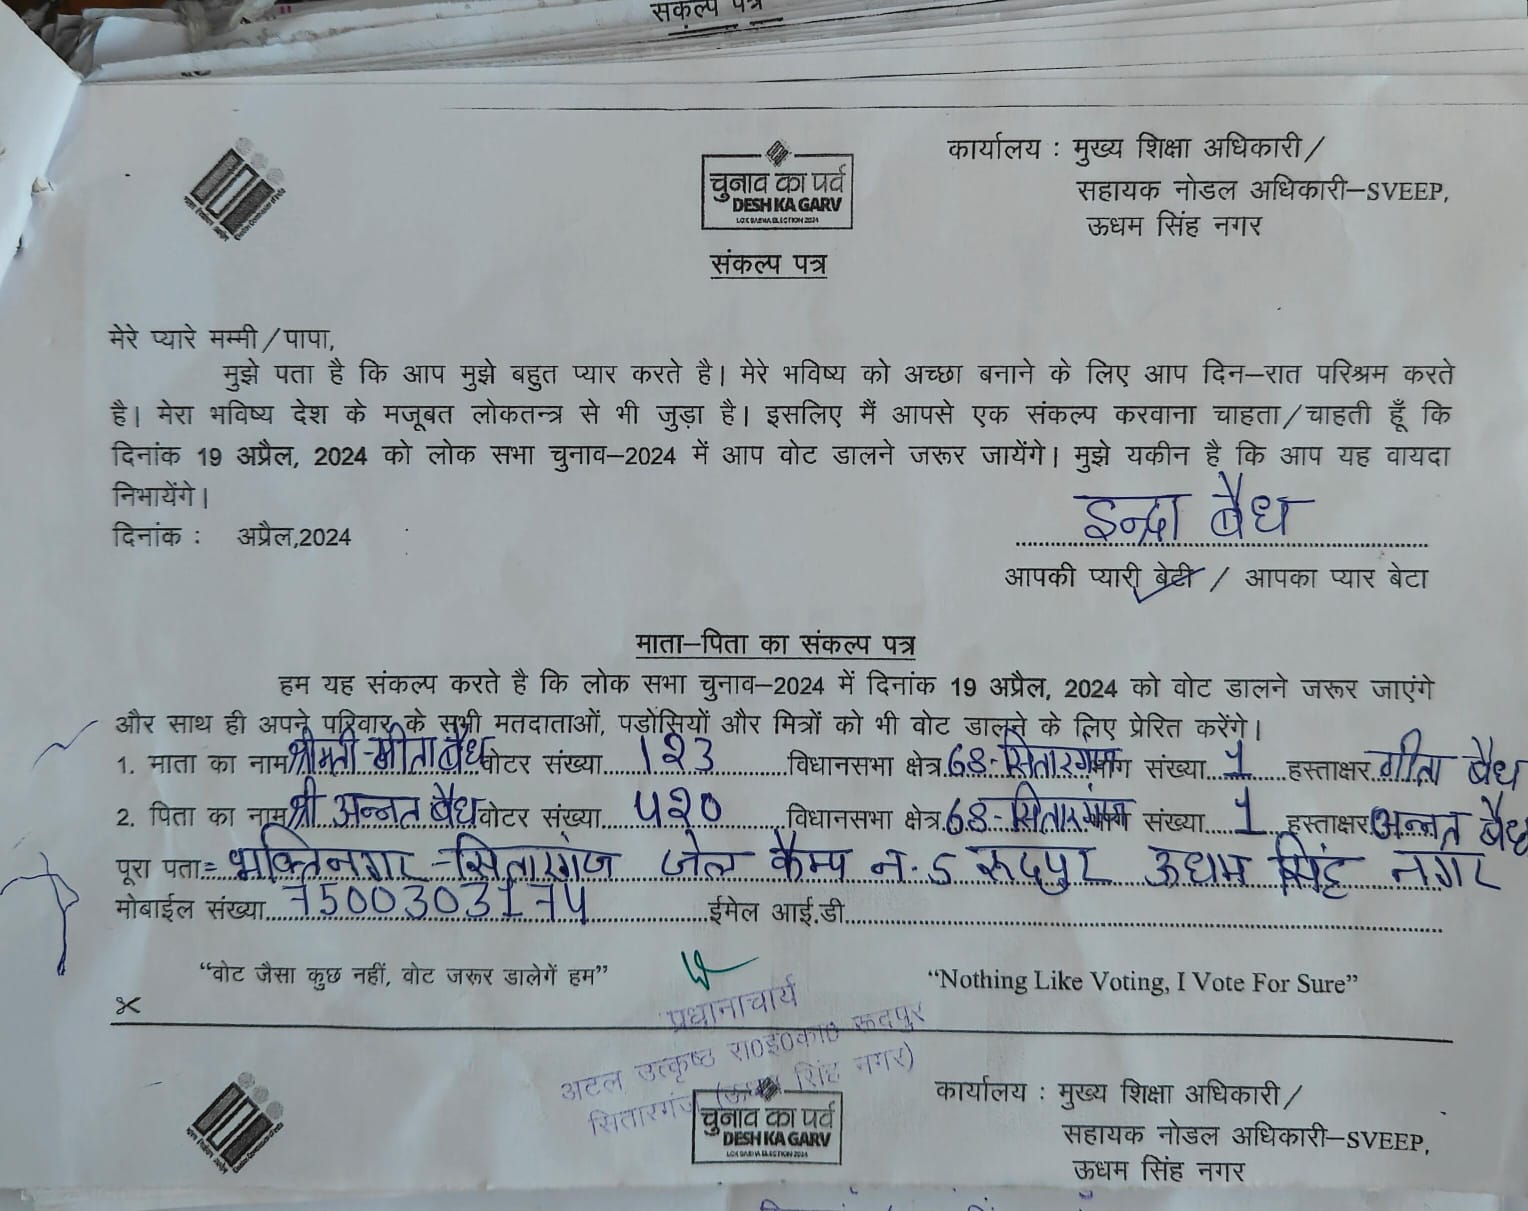 संकल्प पत्र
चुनाव का पर्व
DESH KA GARV
LOK SABHA ELECTION 2024
कार्यालय : मुख्य शिक्षा अधिकारी/
सहायक नोडल अधिकारी–SVEEP,
ऊधम सिंह नगर
संकल्प पत्र
मेरे प्यारे मम्मी/पापा,
मुझे पता है कि आप मुझे बहुत प्यार करते है। मेरे भविष्य को अच्छा बनाने के लिए आप दिन–रात परिश्रम करते
है। मेरा भविष्य देश के मजूबत लोकतन्त्र से भी जुड़ा है। इसलिए मैं आपसे एक संकल्प करवाना चाहता/चाहती हूँ कि
दिनांक 19 अप्रैल, 2024 को लोक सभा चुनाव–2024 में आप वोट डालने जरूर जायेंगे। मुझे यकीन है कि आप यह वायदा
निभायेंगे।
इन्द्रा बैध
दिनांक : अप्रैल,2024
आपकी प्यारी बेटी / आपका प्यार बेटा
माता–पिता का संकल्प पत्र
हम यह संकल्प करते है कि लोक सभा चुनाव–2024 में दिनांक 19 अप्रैल, 2024 को वोट डालने जरूर जाएंगे
और साथ ही अपने परिवार के सभी मतदाताओं, पड़ोसियों और मित्रों को भी वोट डालने के लिए प्रेरित करेंगे।
1. माता का नाम श्रीमती - गीता बैध वोटर संख्या 123 विधानसभा क्षेत्र 68-सितारगंज भाग संख्या 1 हस्ताक्षर गीता बैध
2. पिता का नाम श्री अन्नत बैध वोटर संख्या ५२० विधानसभा क्षेत्र 68-सितारगंज संख्या 1 हस्ताक्षर अन्नत बैध
पूरा पता= भक्तिनगर -सितारगंज जेल कैम्प न. 5 रूदपुर ऊधम सिंह नगर
मोबाईल संख्या ईमेल आई.डी
“वोट जैसा कुछ नहीं, वोट जरूर डालेगें हम” “Nothing Like Voting, I Vote For Sure”
प्रधानाचार्य
अटल उत्कृष्ठ रा0इ0का0 रूदपुर
सितारगंज (ऊधम सिंह नगर)
चुनाव का पर्व
DESH KA GARV
LOK SABHA ELECTION 2024
कार्यालय : मुख्य शिक्षा अधिकारी/
सहायक नोडल अधिकारी–SVEEP,
ऊधम सिंह नगर